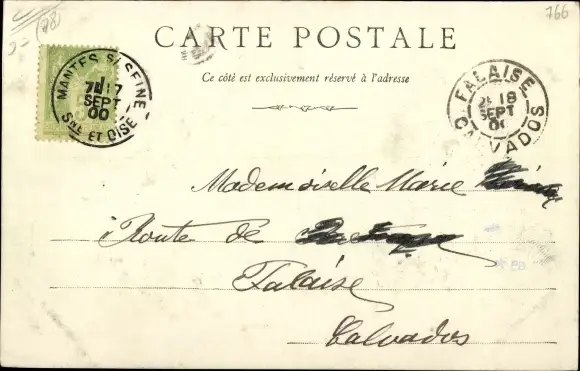 766
(78)
CARTE POSTALE
Ce côté est exclusivement réservé à l'adresse
MANTES S/SEINE
7E 17
SEPT
00
SNE ET OISE
FALAISE
18
SEPT
CALVADOS
Mademoiselle Marie
Route de
Falaise
Calvados